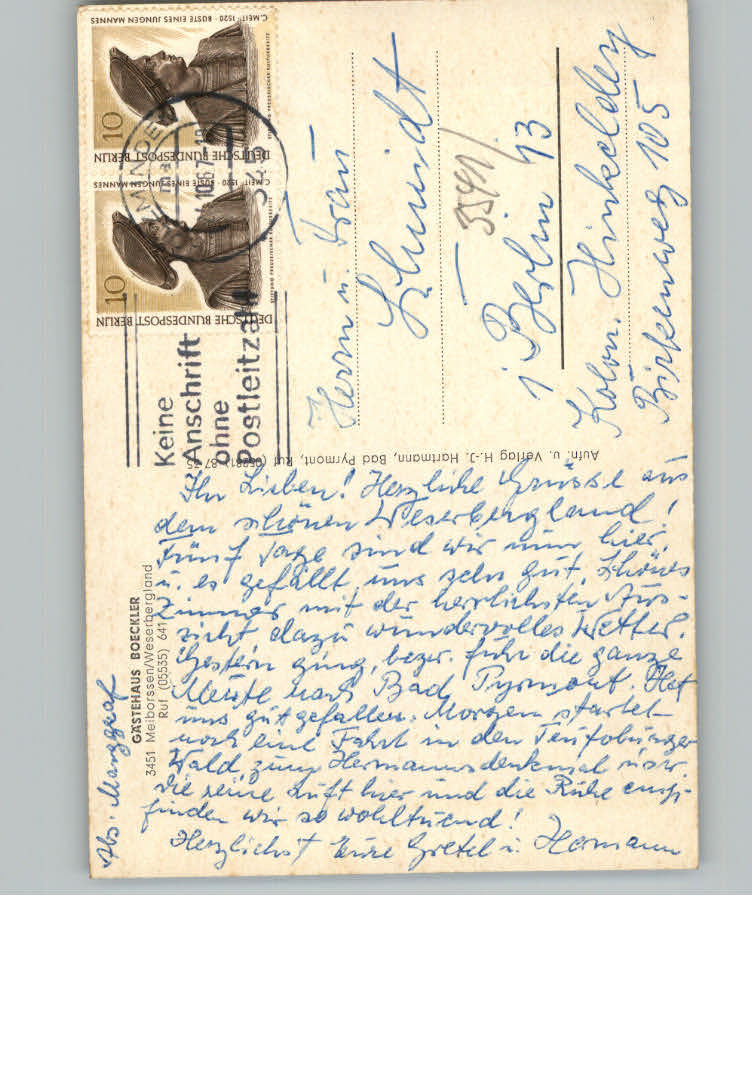 Abs. Manggraf
GÄSTEHAUS BOECKLER
3451 Meiborssen/Weserbergland
Ruf (05535) 641
Ihr Lieben! Herzliche Grüsse aus
dem schönen Weserbergland!
Fünf Tage sind wir nun hier,
u. es gefällt uns sehr gut. Schönes
Zimmer mit der herrlichsten Aus-
sicht dazu wundervolles Wetter.
Gestern ging, bezw. fuhr die ganze
Meute nach Bad Pyrmont. Hat
uns gut gefallen. Morgen startet
noch eine Fahrt in den Teutoburger
Wald, zum Hermannsdenkmal usw.
Die reine Luft hier und die Ruhe emp-
finden wir so wohltuend!
Herzlichst Eure Gretel u. Hermann
Aufn. u. Verlag H.-J. Hartmann, Bad Pyrmont, Ruf (05281) 87 75
Keine
Anschrift
ohne
Postleitzahl
3451
C. MEIT · 1520 · BÜSTE EINES JUNGEN MANNES
STIFTUNG PREUSSISCHER KULTURBESITZ
10
DEUTSCHE BUNDESPOST BERLIN
C. MEIT · 1520 · BÜSTE EINES JUNGEN MANNES
STIFTUNG PREUSSISCHER KULTURBESITZ
10
DEUTSCHE BUNDESPOST BERLIN
Herrn u. Frau
Schmidt
3541/
1 Berlin 13
Kolon. Hinkeldey
Birkenweg 105